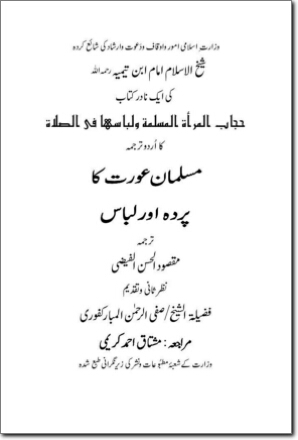 وزارت اسلامی امور واوقاف ودعوت وارشاد کی شائع کردہ
شیخ الاسلام امام ابن تیمیہ رحمہ اللہ
کی ایک نادر کتاب
حجاب المرأة المسلمة ولباسها فى الصلاة
کا اُردو ترجمہ
مسلمان عورت کا
پردہ اور لباس
ترجمہ
مقصود الحسن الفیضی
نظر ثانی وتقدیم
فضیلۃ الشیخ/صفی الرحمٰن المبارکفوری
مراجعہ: مشتاق احمد کریمی
وزارت کے شعبۂ مطبوعات ونشر کی زیر نگرانی طبع شدہ